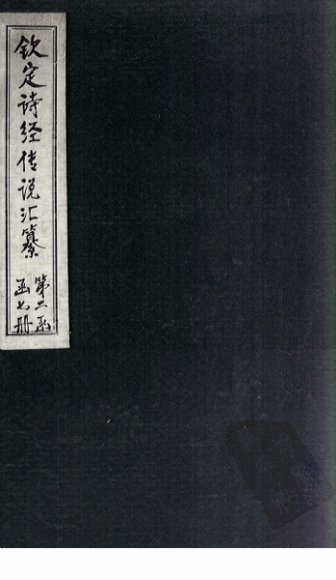 钦定诗经传说汇纂
第二系
函七册